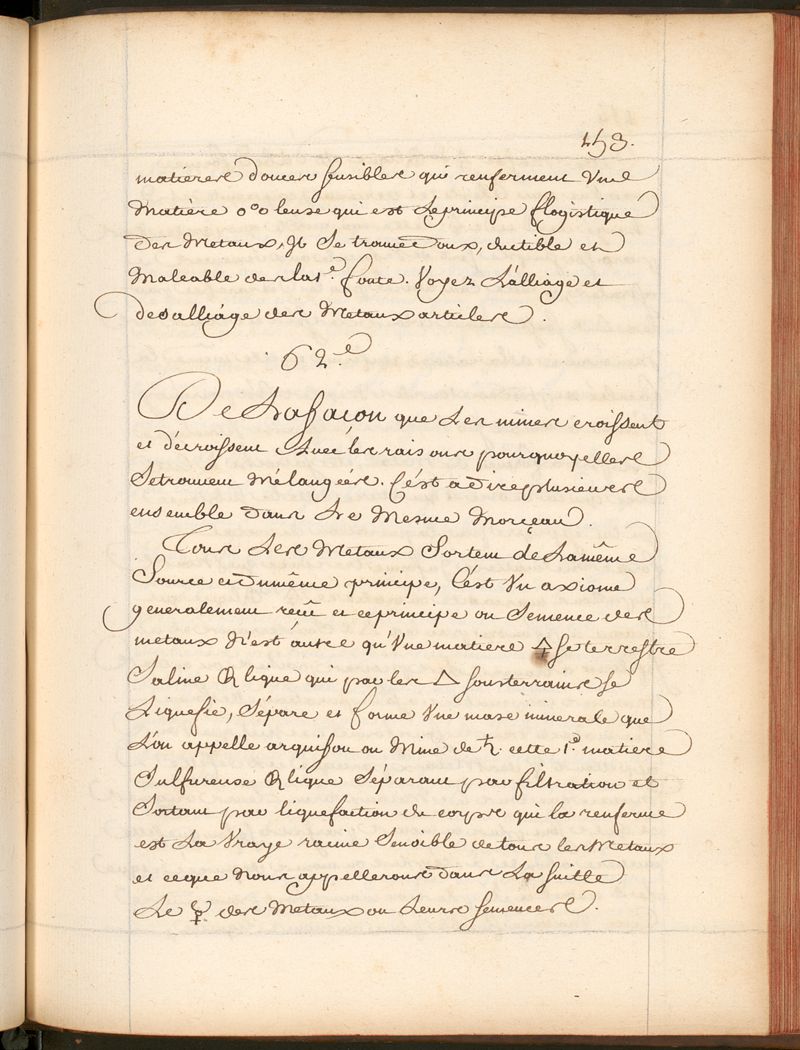 153.
matieres douces sensibles qui renferment Une
Matière o°o leuse qui est Le principe flogistique
Des Metaux, Il Se trouve Doux, ductible et
Maleable des la 1.e fonte. Voyez L'alliage et
desalliage des Metaux articles.
62.e
De La façon que Les mines croissent
et décroissent Avec les raisons pourquoy elles
Se trouvent Mélangées. C'ést a Dire plusieurs
ensemble dans Le Mesme Morçeau.
Tous Les Metaux Sortent de La même
Source et D'un même principe, C'est Un axiome
generalement reçû et ce principe ou Semence des
metaux N'est autre qu'Une matiere 🜍 se terrestre
Saline lique qui par les △ sousterrains se
Liquefie, Sépare et forme Une mase minerale que
L'on appelle arquifou ou Mine de ♄. cette 1.e matiere
Sulfureuse lique Séparant par filtration et
Sortant par liquefaction du corps qui la renferme
est La Vraye racine Sensible de tous les Metaux
et ce que Nous appellerons dans La suitte
Le ☿ des Metaux ou Leurs semences.